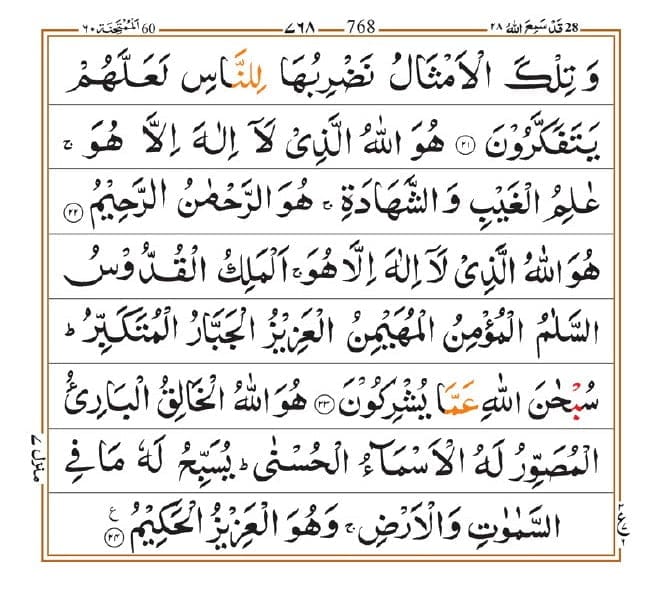 28 قَدْ سَمِعَ اللهُ ٢٨ — 768 — ٧٦٨ — 60 اَلْمُمْتَحِنَة ٦٠
وَ تِلْكَ الْاَمْثَالُ نَضْرِبُهَا لِلنَّاسِ لَعَلَّهُمْ
يَتَفَكَّرُوْنَ ﴿٢١﴾ هُوَ اللهُ الَّذِىْ لَآ اِلٰهَ اِلَّا هُوَ ۚ
عٰلِمُ الْغَيْبِ وَالشَّهَادَةِ ۚ هُوَ الرَّحْمٰنُ الرَّحِيْمُ ﴿٢٢﴾
هُوَ اللهُ الَّذِىْ لَآ اِلٰهَ اِلَّا هُوَ ۚ اَلْمَلِكُ الْقُدُّوْسُ
السَّلٰمُ الْمُؤْمِنُ الْمُهَيْمِنُ الْعَزِيْزُ الْجَبَّارُ الْمُتَكَبِّرُ ؕ
سُبْحٰنَ اللهِ عَمَّا يُشْرِكُوْنَ ﴿٢٣﴾ هُوَ اللهُ الْخَالِقُ الْبَارِئُ
الْمُصَوِّرُ لَهُ الْاَسْمَآءُ الْحُسْنٰى ؕ يُسَبِّحُ لَهٗ مَا فِى
السَّمٰوٰتِ وَالْاَرْضِ ۚ وَهُوَ الْعَزِيْزُ الْحَكِيْمُ ﴿٢٤﴾ ع
منزل ٧